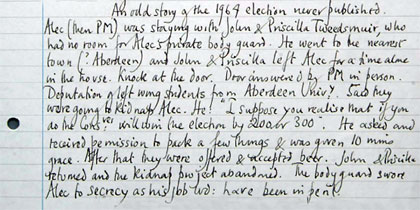 An odd story of the 1964 election never published.
Alec (then PM) was staying with John & Priscilla Tweedsmuir, who
had no room for Alec's private body guard. He went to the nearest
town (? Aberdeen) and John & Priscilla left Alec for a time alone
in the house. Knock at the door. Door answered by PM in person.
Deputation of left wing students from Aberdeen Univ. Said they
were going to kidnap Alec. He: "I suppose you realise that if you
do the Cons:ves will win the election by 200 or 300". He asked and
received permission to pack a few things & was given 10 mins
grace. After that they were offered & accepted beer. John &
returned and the kidnap project abandoned. The bodyguard swore
Alec to secrecy as his job wd: have been in peril.